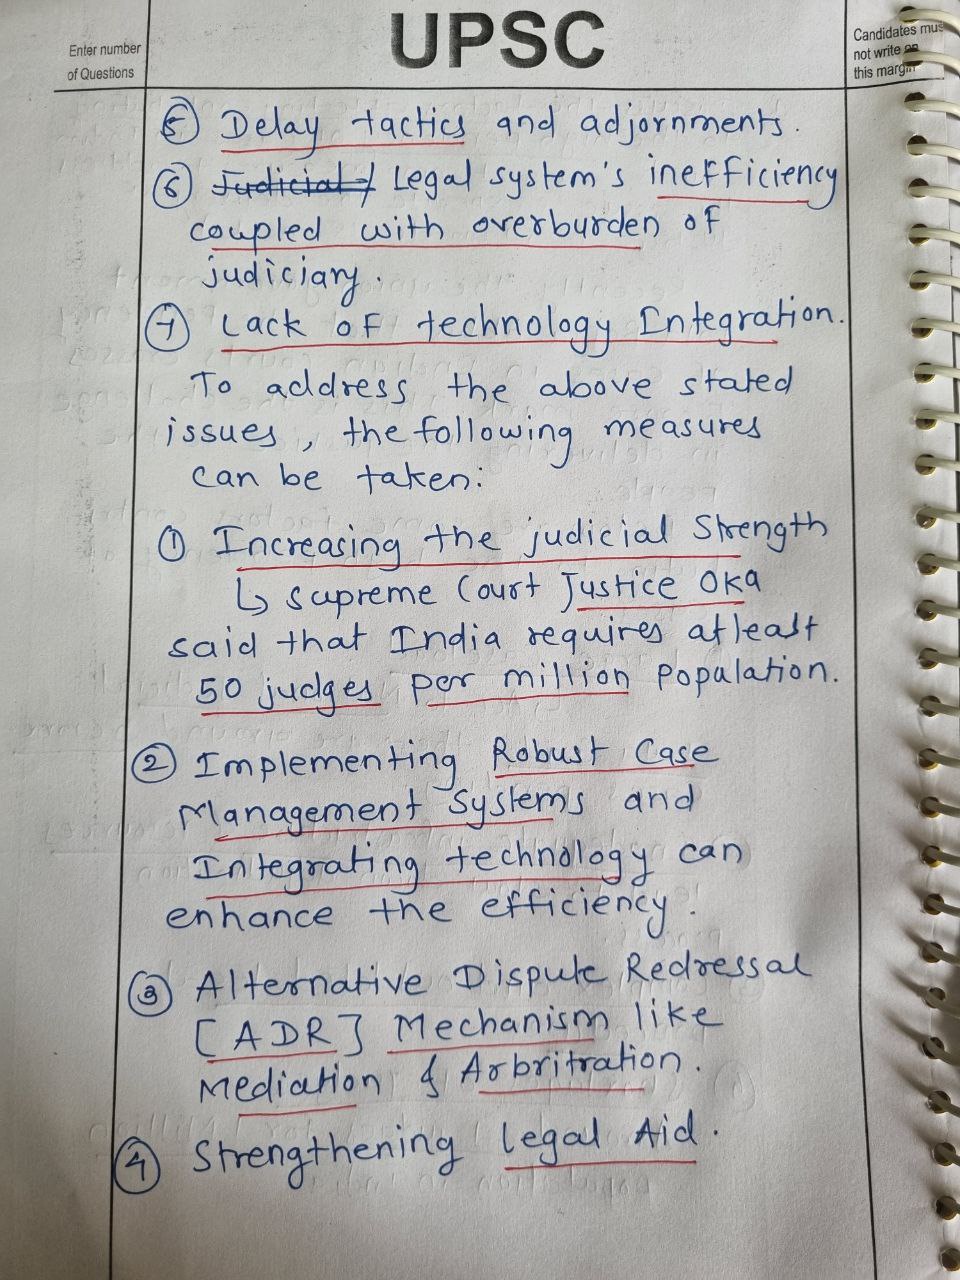 UPSC
Enter number
of Questions
Candidates mus
not write on
this margin
⑤ Delay tactics and adjornments.
⑥ Judicial / Legal system's inefficiency
coupled with overburden of
judiciary.
⑦ Lack of technology Integration.
To address the above stated
issues, the following measures
can be taken:
① Increasing the judicial Strength
↳ supreme Court Justice Oka
said that India requires atleast
50 judges per million population.
② Implementing Robust Case
Management Systems and
Integrating technology can
enhance the efficiency.
③ Alternative Dispute Redressal
[ADR] Mechanism like
Mediation & Arbritration.
④ Strengthening legal Aid.